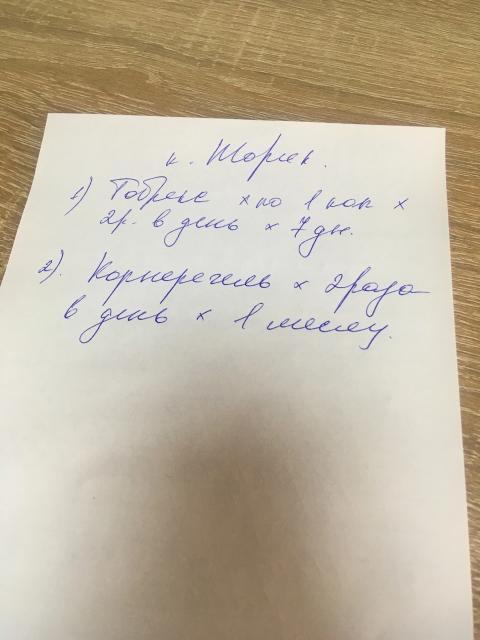 к. Шорик.
1) Тобрекс х по 1 кап х
2р. в день х 7 дн.
2). Корнерегель х 2 раза
в день х 1 месяц.